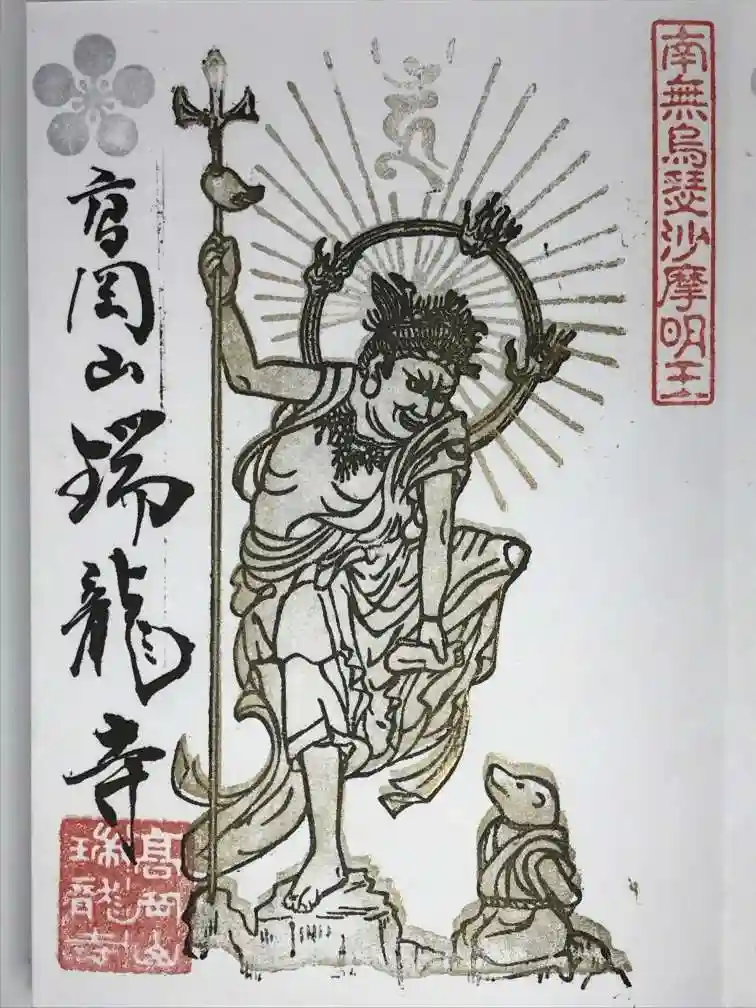 南無烏瑟沙摩明王
高岡山瑞龍寺
高岡山
瑞龍寺